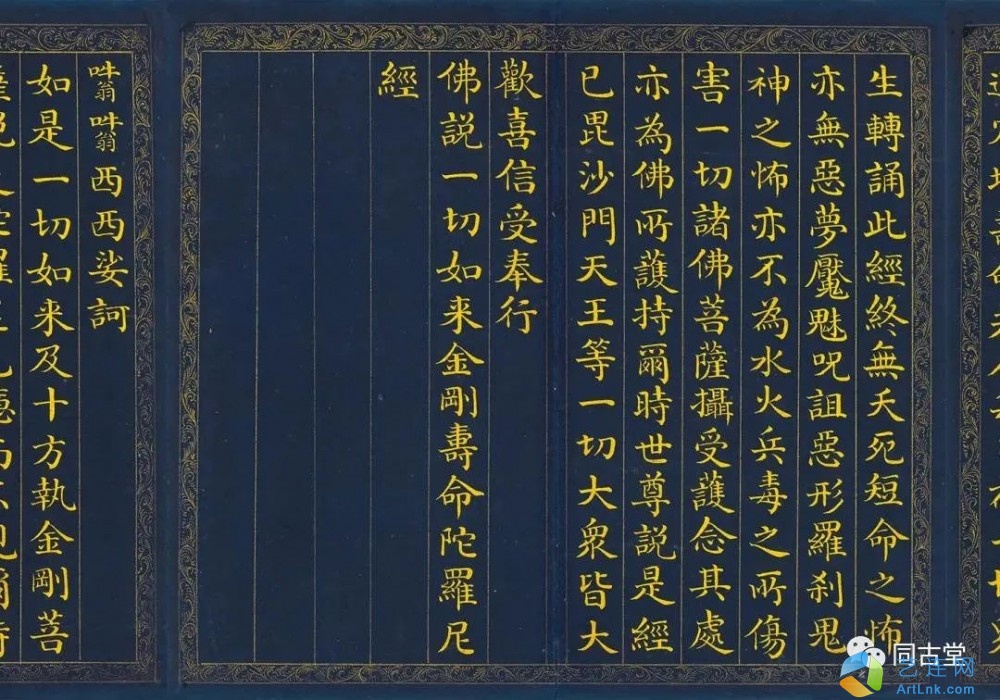 生轉誦此經終無夭死短命之怖
亦無惡夢魘魅呪詛惡形羅刹鬼
神之怖亦不為水火兵毒之所傷
害一切諸佛菩薩攝受護念其處
亦為佛所護持爾時世尊説是經
已毘沙門天王等一切大眾皆大
歡喜信受奉行
佛説一切如来金剛壽命陀羅尼
經
吽翁吽翁西西娑訶
如是一切如来及十方執金剛菩
同古堂
艺连网
ArtLnk.com